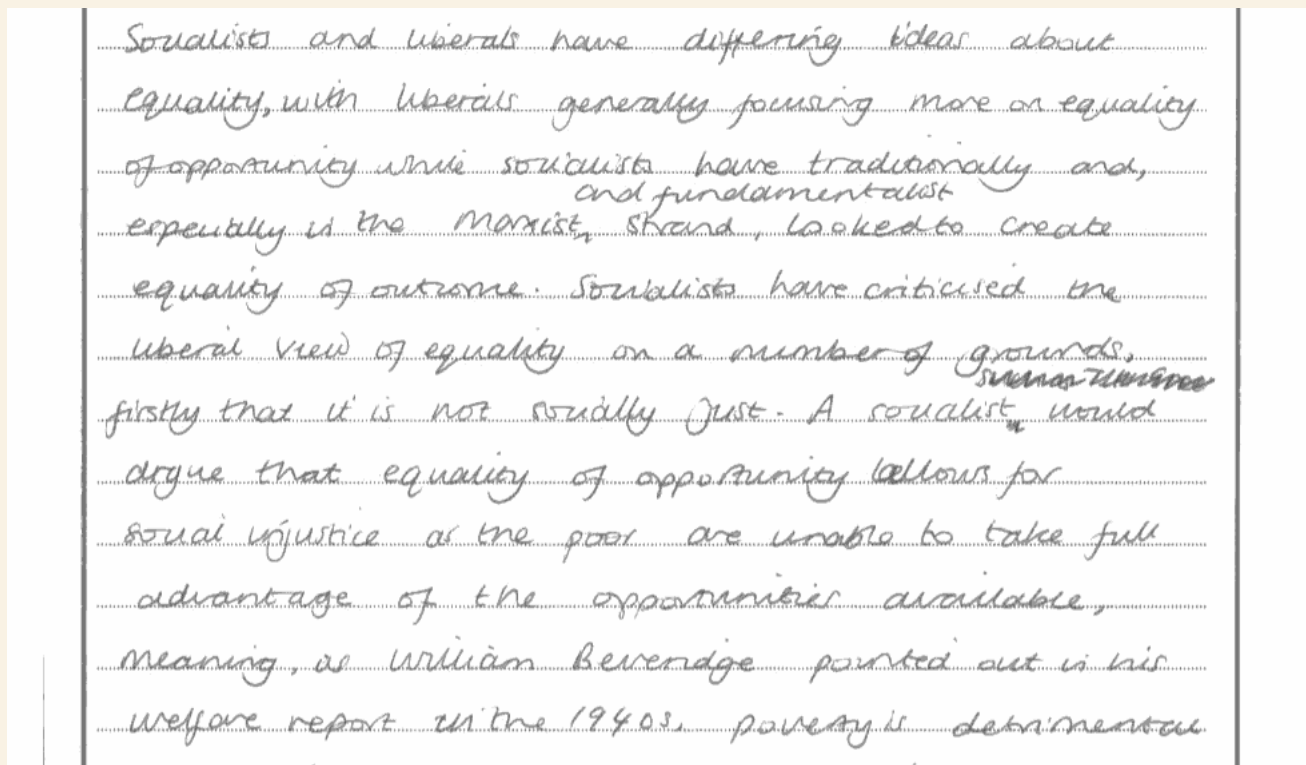 Socialists and liberals have differing ideas about
equality, with liberals generally focusing more on equality
of opportunity while socialists have traditionally and,
and fundamentalist
especially in the Marxist, strand, looked to create
equality of outcome. Socialists have criticised the
liberal view of equality on a number of grounds,
firstly that it is not socially just. A socialist would
argue that equality of opportunity allows for
social injustice as the poor are unable to take full
advantage of the opportunities available,
meaning, as William Beveridge pointed out in his
welfare report in the 1940s, poverty is detrimental